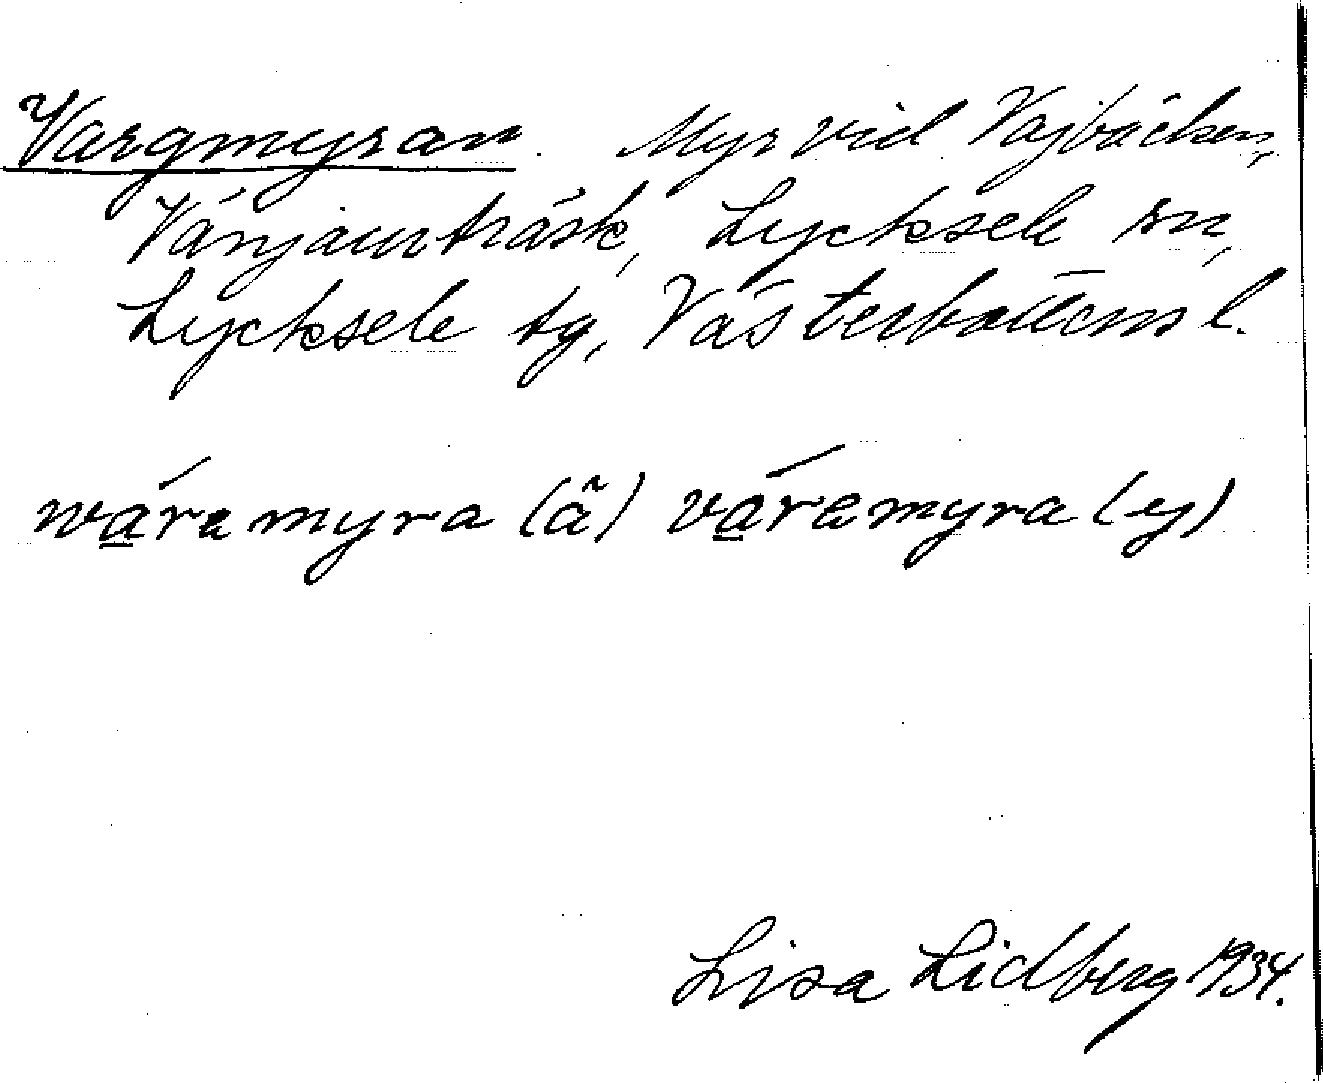 Vargmyran. Myr vid Vajbäcken,
Vänjaurträsk, Lycksele sn,
Lycksele tg, Västerbottens l.
wáramyra (ã) váramyra (y)
Lisa Lidberg 1934.